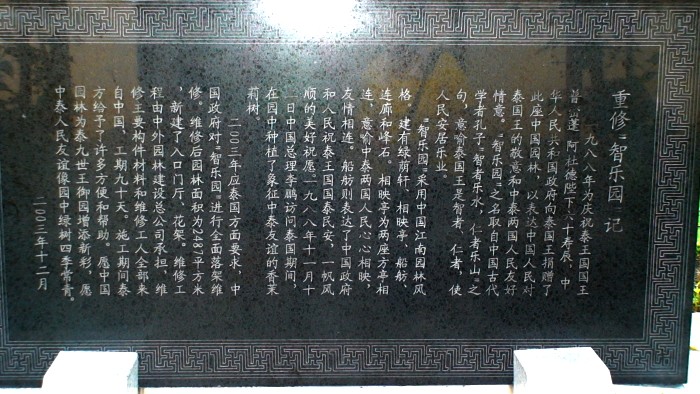 重修“智乐园”记
一九八八年为庆祝泰王国国王
普密蓬·阿杜德陛下六十寿辰，中
华人民共和国政府向泰国王捐赠了
此座中国园林，以表达中国人民对
泰国王的敬意和中泰两国人民友好
情意。“智乐园”之名取自中国古代
学者孔子“智者乐水，仁者乐山”之
句，意喻泰国王是智者、仁者，使
人民安居乐业。
“智乐园”采用中国江南园林风
格。建有绿荫轩、相映亭、船舫、
连廊和峰石。相映亭为两座方亭相
连，意喻中泰两国人民心心相映，
友情相连。船舫则表达了中国政府
和人民祝泰王国国泰民安，一帆风
顺的美好祝愿。一九八八年十一月十
一日中国总理李鹏访问泰国期间，
在园中种植了象征中泰友谊的香茉
莉树。
二〇〇三年应泰国方面要求，中
国政府对“智乐园”进行全面落架维
修。维修后园林面积为2481平方米
，新建了入口门厅、花架。维修工
程由中外园林建设总公司承担，维
修主要构件材料和维修工人全部来
自中国，工期九十天。施工期间泰
方给予了许多方便和帮助。愿中国
园林为泰九世王御园增添新彩，愿
中泰人民友谊像园中绿树四季常青。
二〇〇三年十二月